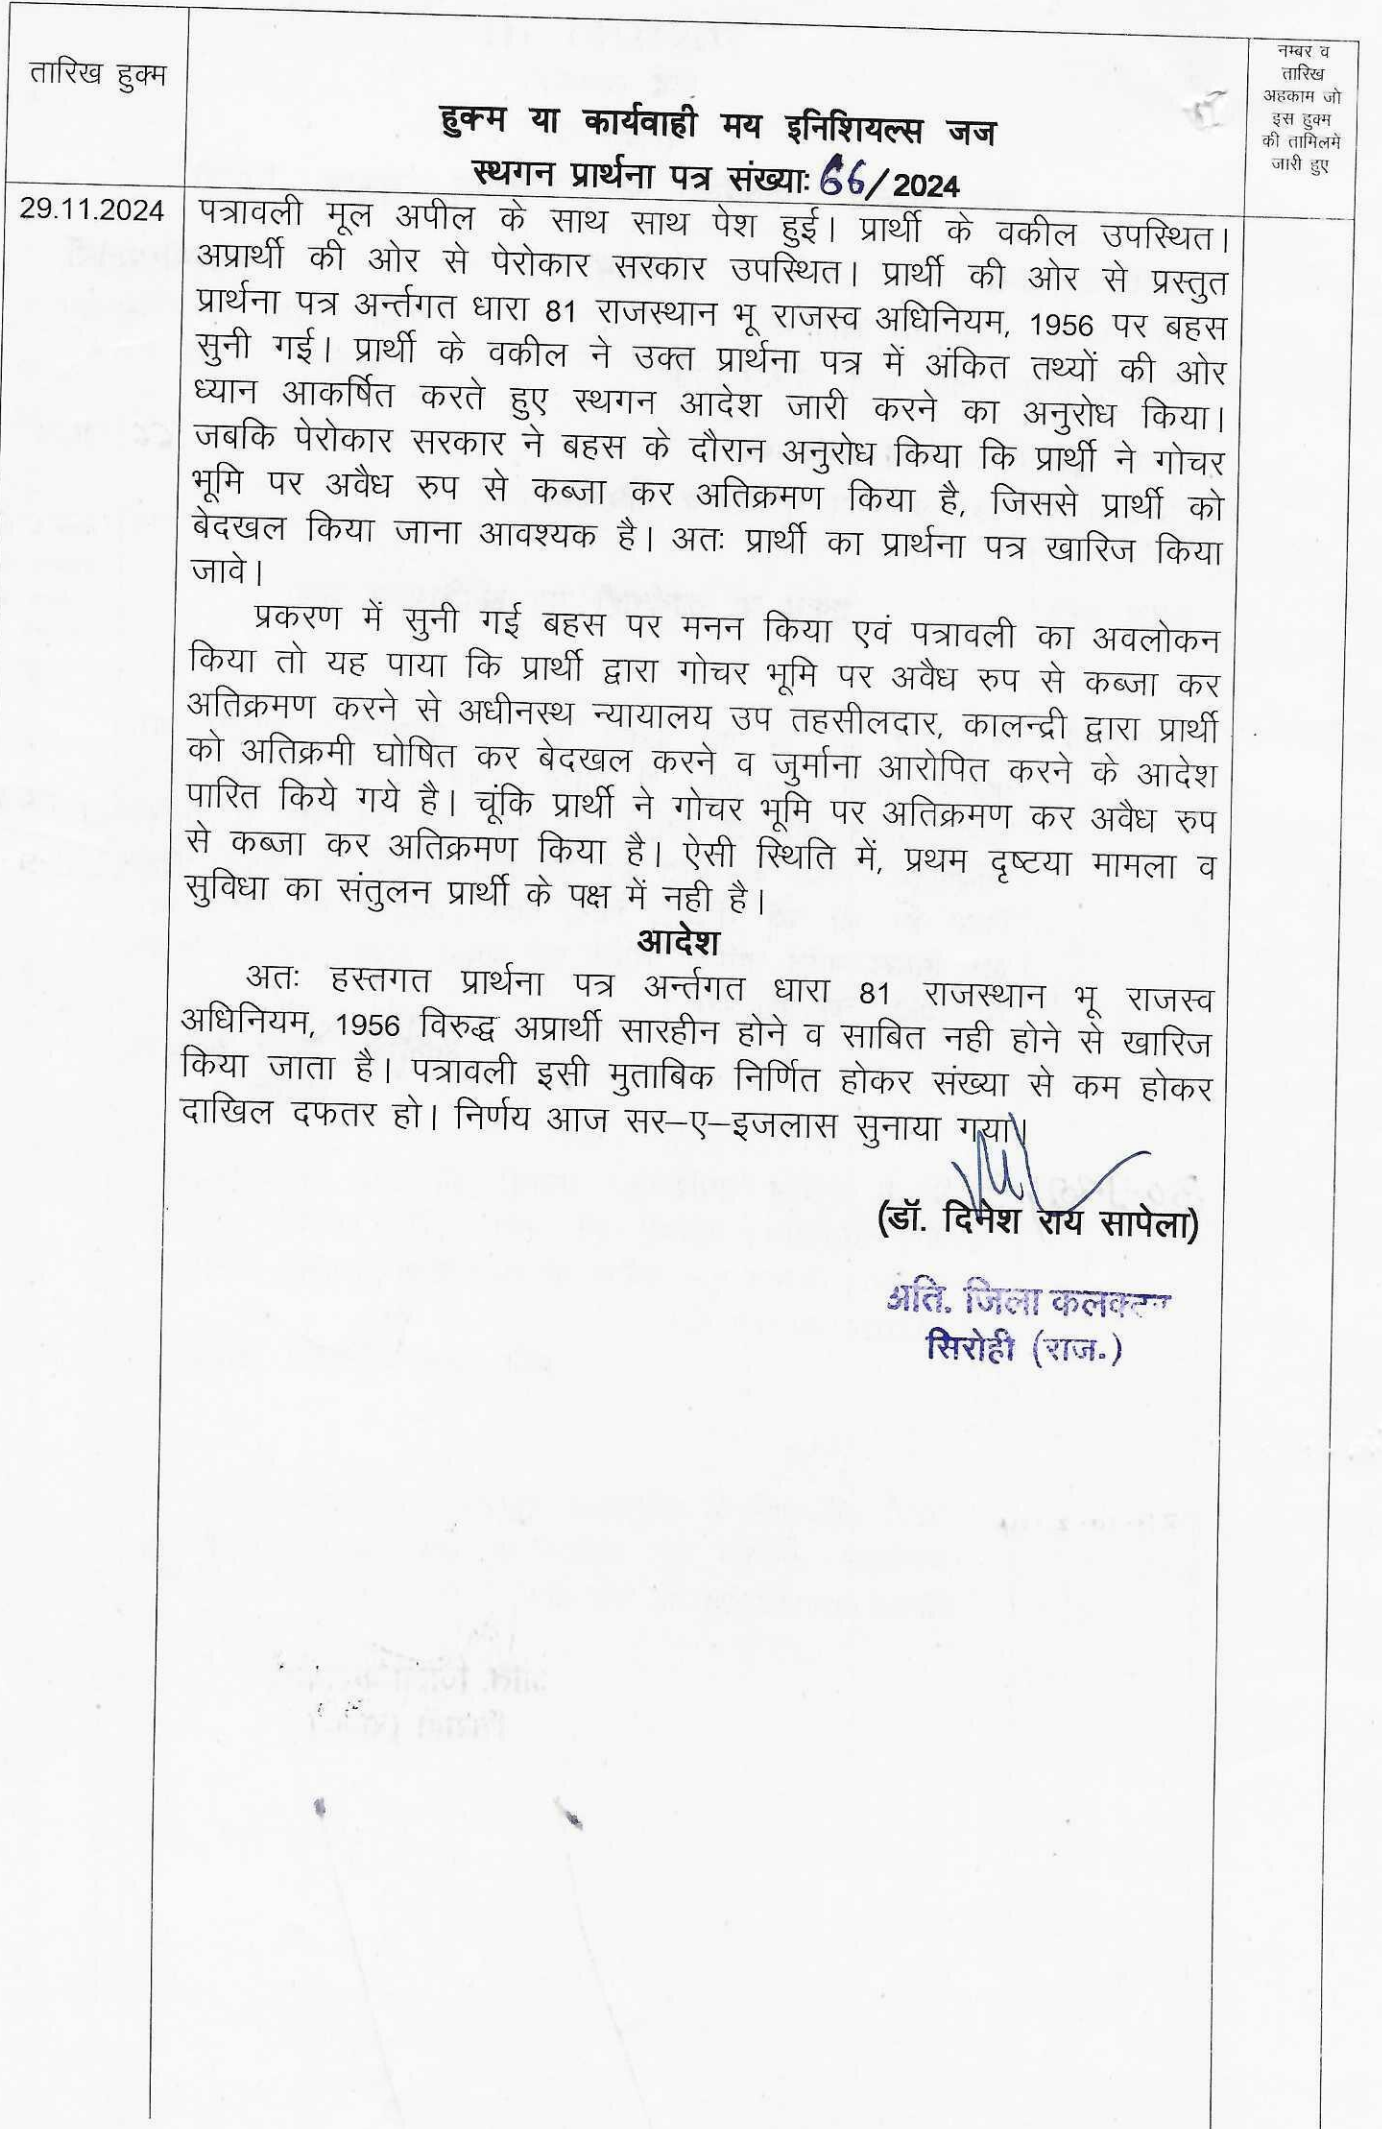 तारिख हुक्म
हुक्म या कार्यवाही मय इनिशियल्स जज
स्थगन प्रार्थना पत्र संख्याः 66/2024
नम्बर व
तारिख
अहकाम जो
इस हुक्म
की तामिलमें
जारी हुए
29.11.2024
पत्रावली मूल अपील के साथ साथ पेश हुई। प्रार्थी के वकील उपस्थित।
अप्रार्थी की ओर से पेरोकार सरकार उपस्थित। प्रार्थी की ओर से प्रस्तुत
प्रार्थना पत्र अर्न्तगत धारा 81 राजस्थान भू राजस्व अधिनियम, 1956 पर बहस
सुनी गई। प्रार्थी के वकील ने उक्त प्रार्थना पत्र में अंकित तथ्यों की ओर
ध्यान आकर्षित करते हुए स्थगन आदेश जारी करने का अनुरोध किया।
जबकि पेरोकार सरकार ने बहस के दौरान अनुरोध किया कि प्रार्थी ने गोचर
भूमि पर अवैध रुप से कब्जा कर अतिक्रमण किया है, जिससे प्रार्थी को
बेदखल किया जाना आवश्यक है। अतः प्रार्थी का प्रार्थना पत्र खारिज किया
जावे।
प्रकरण में सुनी गई बहस पर मनन किया एवं पत्रावली का अवलोकन
किया तो यह पाया कि प्रार्थी द्वारा गोचर भूमि पर अवैध रुप से कब्जा कर
अतिक्रमण करने से अधीनस्थ न्यायालय उप तहसीलदार, कालन्द्री द्वारा प्रार्थी
को अतिक्रमी घोषित कर बेदखल करने व जुर्माना आरोपित करने के आदेश
पारित किये गये है। चूंकि प्रार्थी ने गोचर भूमि पर अतिक्रमण कर अवैध रुप
से कब्जा कर अतिक्रमण किया है। ऐसी स्थिति में, प्रथम दृष्टया मामला व
सुविधा का संतुलन प्रार्थी के पक्ष में नही है।
आदेश
अतः हस्तगत प्रार्थना पत्र अर्न्तगत धारा 81 राजस्थान भू राजस्व
अधिनियम, 1956 विरुद्ध अप्रार्थी सारहीन होने व साबित नही होने से खारिज
किया जाता है। पत्रावली इसी मुताबिक निर्णित होकर संख्या से कम होकर
दाखिल दफतर हो। निर्णय आज सर–ए–इजलास सुनाया गया।
(डॉ. दिनेश राय सापेला)
अति. जिला कलक्टर
सिरोही (राज.)